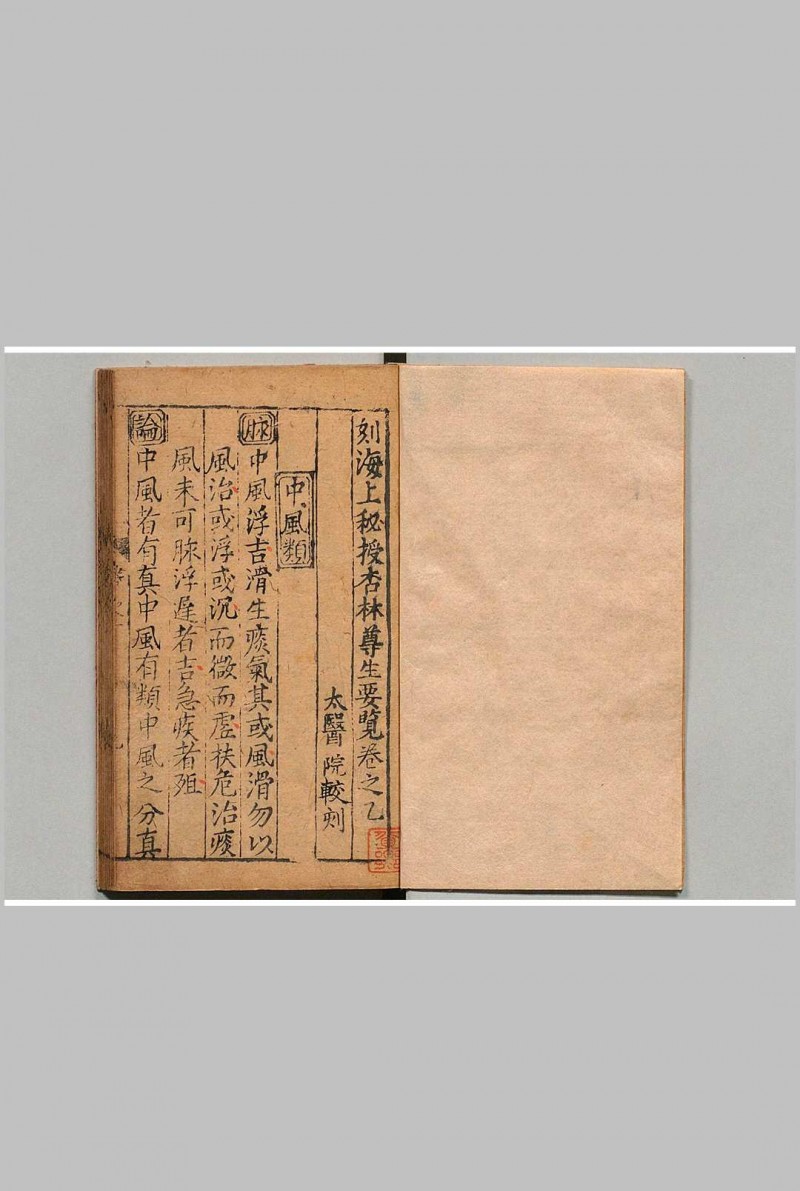 刻海上秘授杏林尊生要覧卷之乙
太醫院較刻
中風類
脉 中風浮吉滑生痰氣其或風滑勿以
風治或浮或沉而微而虛扶危治痰
風未可脉浮遲者吉急疾者殂
論 中風者有真中風有類中風之分真